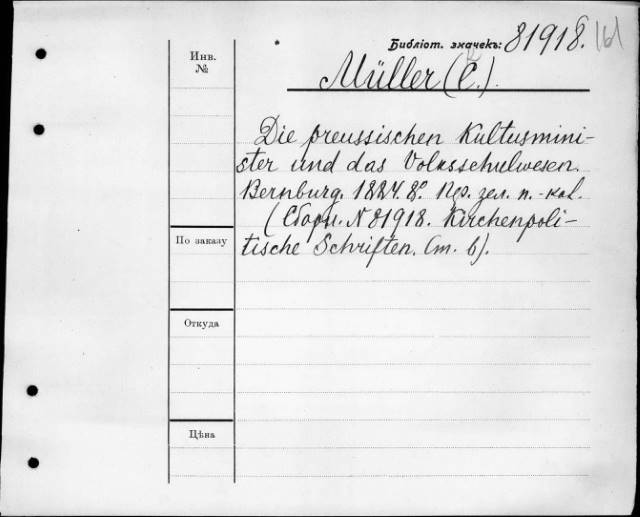 Библіот. значекъ: 81918. 161
Инв. №
Müller (C.).
Die preussischen Kultusmini-
ster und das Volksschulwesen.
Bernburg. 1884. 8º. Пер. зел. п.-кол.
(Сборн. N 81918. Kirchenpoli-
tische Schriften. (т. 6).
По заказу
Откуда
Цѣна